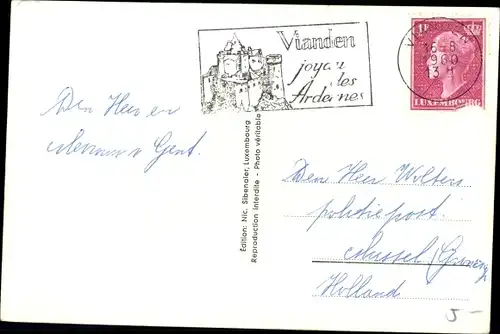 Vianden
joyau
des
Ardennes
16-8
1960
13 H
LUXEMBOURG
Den Heer en
Mevrouw Gent.
Edition: Nic. Sibenaler, Luxembourg
Reproduction interdite - Photo véritable
Den Heer Wolters
politiepost.
Mussel
Holland
5-